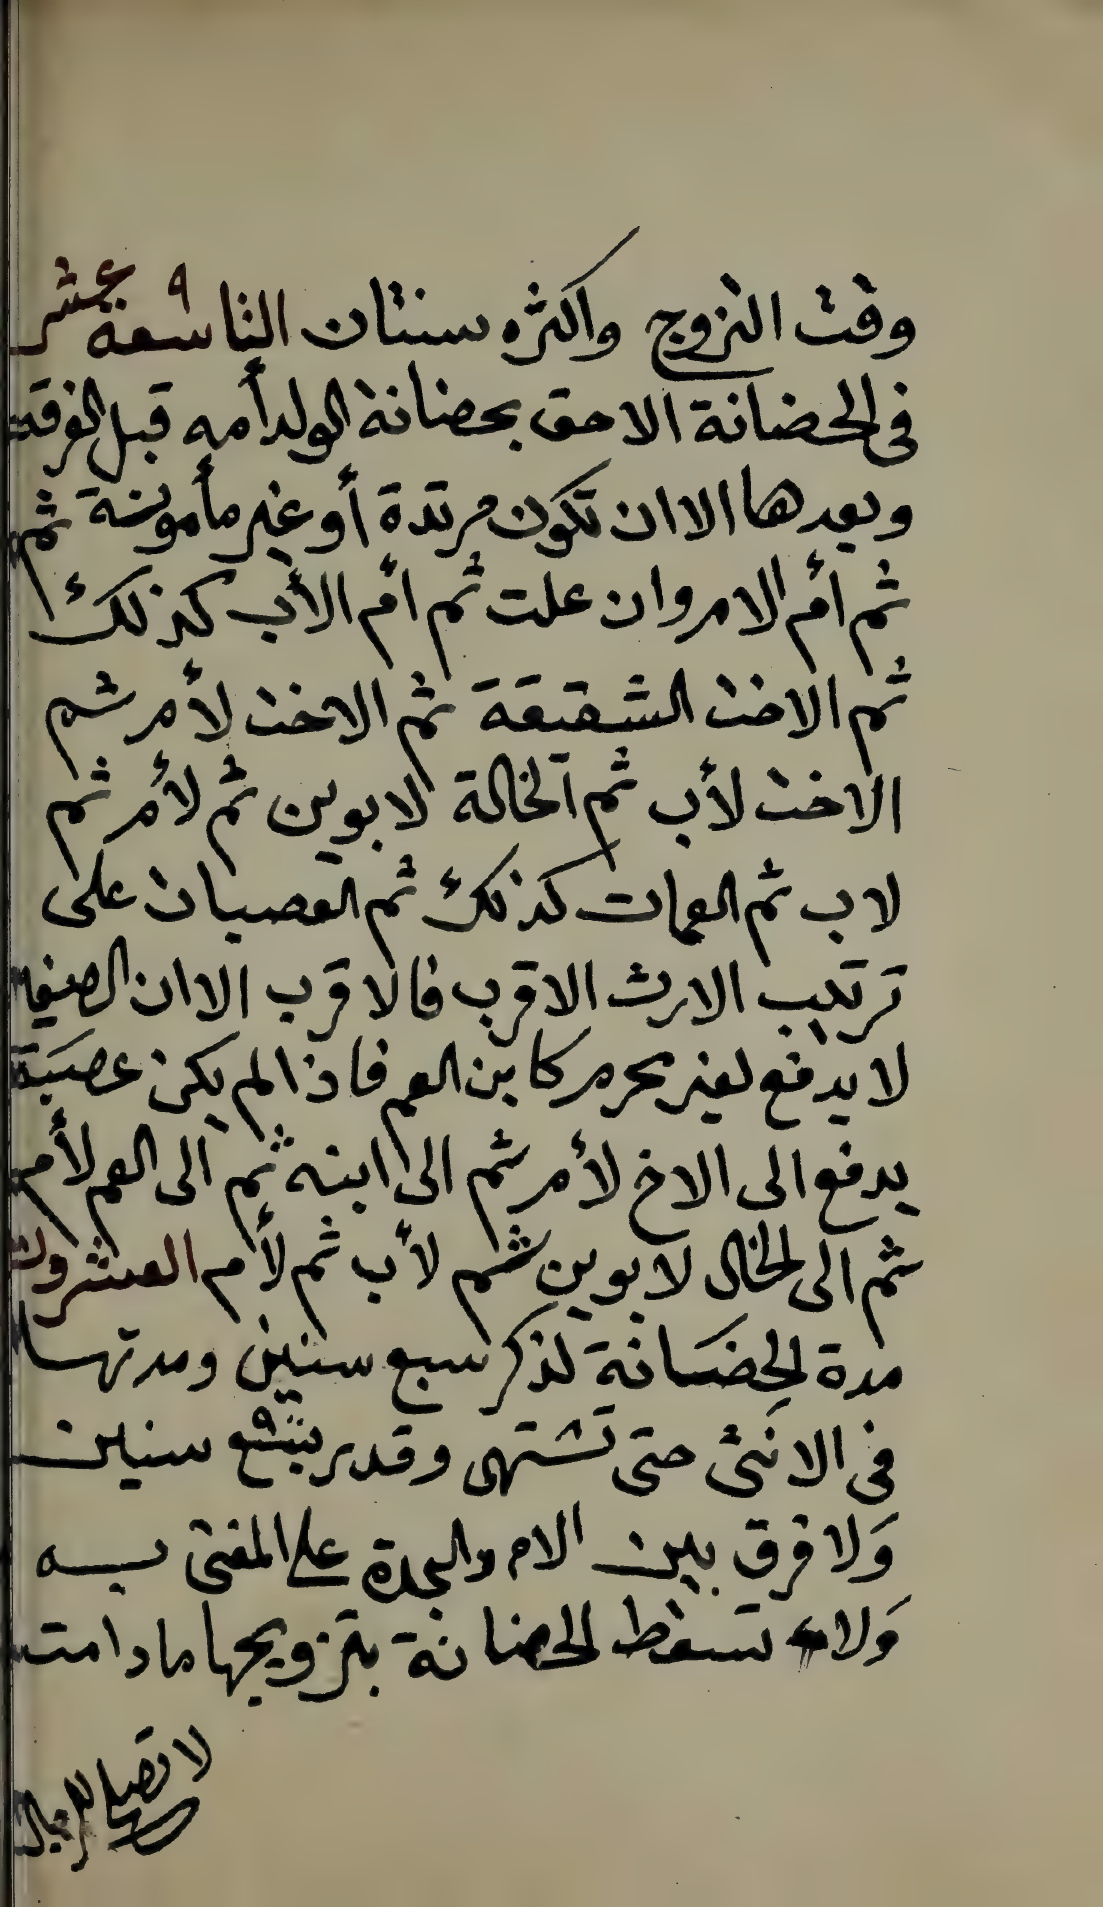 وقت التزوج واكثره سنتان التاسعة عشر ٩
فى الحضانة الاحق بحضانة الولد أمه قبل الفرقة
وبعدها الا ان تكون مرتدة أو غير مأمونة ثم
ثم أم الام وان علت ثم أم الأب كذلك
ثم الاخت الشقيقة ثم الاخت لأم ثم
الاخت لأب ثم الخالة لابوين ثم لأم ثم
لاب ثم العمات كذلك ثم العصبات على
ترتيب الارث الاقرب فالاقرب الا ان الصغيرة
لا يدفع لغير محرم كابن العم فاذا لم يكن عصبة
يدفع الى الاخ لأم ثم الى ابنه ثم الى العم لأم
ثم الى الخال لابوين ثم لأب ثم لأم العشرون
مدة الحضانة لذكر سبع سنين ومدتها
فى الانثى حتى تشتهى وقدر بتسع ٩ سنين
ولا فرق بين الام والجدة على المفتى به
ولا تسقط الحضانة بتزويجها ما دامت
لا تصلح للرجال